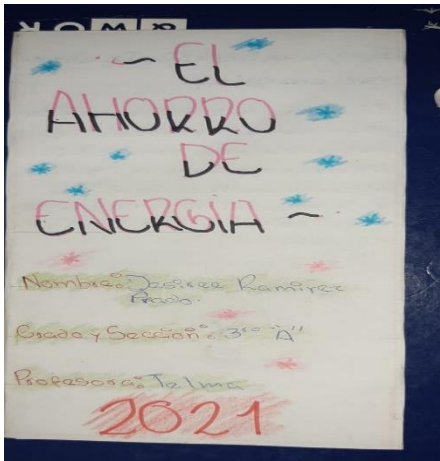 ~ EL
AHORRO
DE
ENERGIA ~
Nombre: Desiree Ramirez
Prado.
Grado y Sección: 3ro "A"
Profesora: Telma
2021